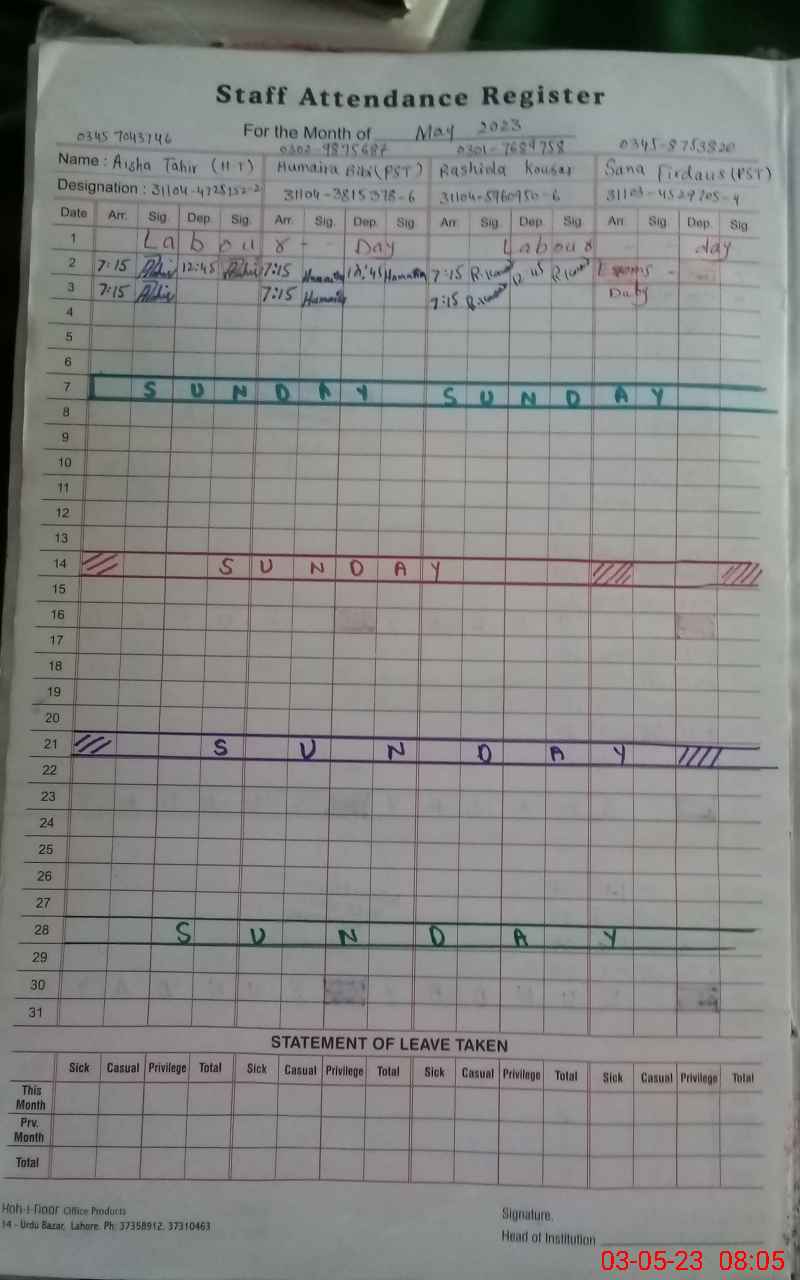 Staff Attendance Register
For the Month of May 2023
0345 7043746 0302-9875687 0301-7689758 0345-8753820
Name : Aisha Tahir (H·T) Humaira Bibi (PST) Rashida Kousar Sana Firdaus (PST)
Designation : 31104-4728152-2 31104-3815378-6 31104-5960950-6 31103-4529705-4
Date Arr. Sig. Dep. Sig. Arr. Sig. Dep. Sig. Arr. Sig. Dep. Sig Arr. Sig. Dep. Sig.
1 Labour Day Labour day
2 7:15 12:45 7:15 Humaira 12:45 Humaira 7:15 R.kousar 12:45 R.kousar Exams
3 7:15 7:15 Humaira 7:15 R.kousar Duty
4
5
6
7 SUNDAY SUNDAY
8
9
10
11
12
13
14 SUNDAY
15
16
17
18
19
20
21 SUNDAY
22
23
24
25
26
27
28 SUNDAY
29
30
31
STATEMENT OF LEAVE TAKEN
Sick Casual Privilege Total Sick Casual Privilege Total Sick Casual Privilege Total Sick Casual Privilege Total
This
Month
Prv.
Month
Total
Koh-i-noor Office Products
14 - Urdu Bazar, Lahore. Ph: 37358912, 37310463
Signature.
Head of Institution
03-05-23 08:05